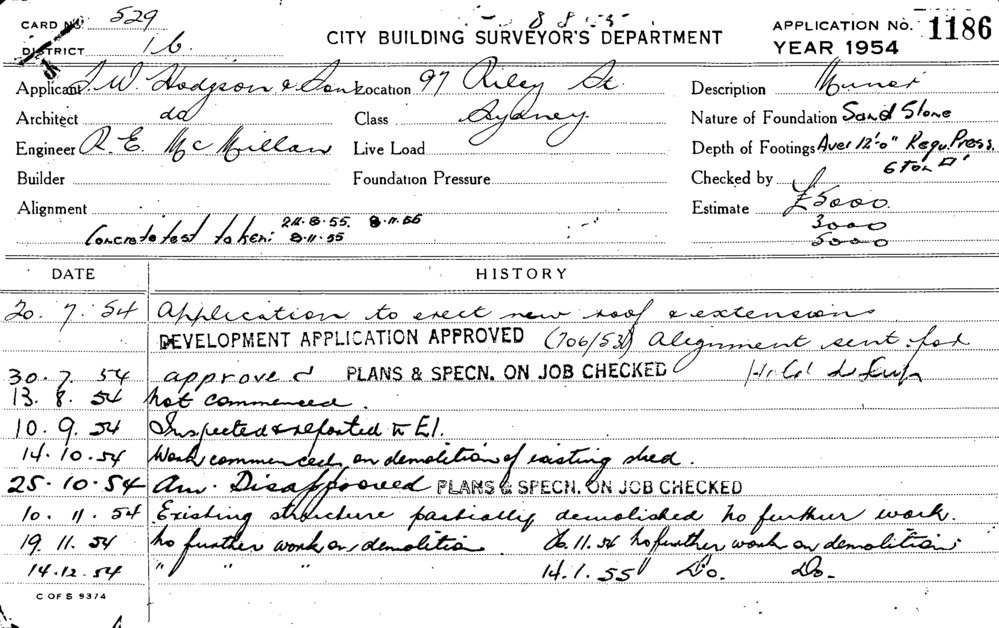 CARD NO. 529
DISTRICT 16
CITY BUILDING SURVEYOR'S DEPARTMENT
APPLICATION NO. 1186
YEAR 1954
Applicant J. W. Hodgson & Sons
Location 97 Riley St.
Description
Architect do
Class Sydney
Nature of Foundation Sand Stone
Engineer R. E. McMillan
Live Load
Depth of Footings Aver 12'.0" Requ. Press.
6 Ton □'
Builder
Foundation Pressure
Checked by
Alignment
Estimate £5000
3000
5000
Concrete test taken: 24.8.55. 8.11.55
8.11.55
DATE HISTORY
20. 7. 54 Application to erect new roof & extensions
DEVELOPMENT APPLICATION APPROVED (706/53) Alignment sent for
30. 7. 54 approved PLANS & SPECN. ON JOB CHECKED
13. 8. 54 Not commenced.
10. 9. 54 Inspected & reported to E1.
14.10.54 Work commenced on demolition of existing shed.
25.10.54 Am. Disapproved PLANS & SPECN. ON JOB CHECKED
10. 11. 54 Existing structure partially demolished no further work.
19. 11. 54 No further work on demolition 26.11.54 No further work on demolition
14.12.54 " " " 14.1.55 Do. Do.
C OF S 9374